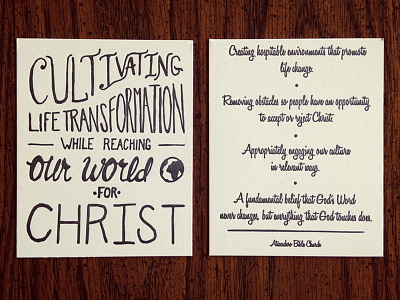 CULTIVATING
LIFE TRANSFORMATION
WHILE REACHING
our WORLD
·FOR·
CHRIST
Creating hospitable environments that promote
life change.
Removing obstacles so people have an opportunity
to accept or reject Christ.
Appropriately engaging our culture
in relevant ways.
A fundamental belief that God's Word
never changes, but everything that God touches does.
Atascadero Bible Church